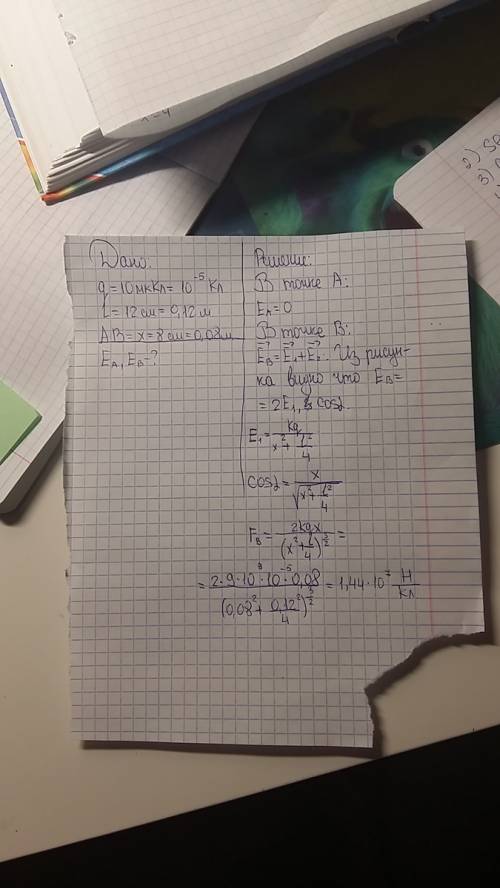 x=4
2) Se
3)
Дано:
q=10мкКл=10⁻⁵ Кл
l=12см=0,12м
AB=x=8см=0,08м
E_A, E_B-?
Решение:
В точке А:
E_A=0
В точке В:
E⃗_B=E⃗₁+E⃗₂. Из рисун-
ка видно что E_B=
=2E₁, cosα.
E₁=kq/(x²+l²/4)
cosα=x/√(x²+l²/4)
E_B=2kqx/(x²+l/4)^(3/2)=
=2·9·10⁹·10⁻⁵·0,08/(0,08²+0,12²/4)^(3/2)=1,44·10⁷ Н/Кл